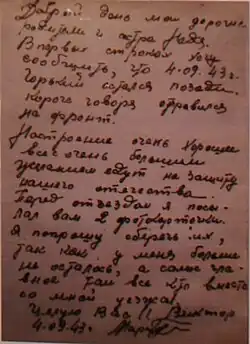 Добрый день мои дорогие
родители и сестра Надя.
В первых строках хочу
сообщить, что 4.09.43 г.
Горький остался позади.
Короче говоря отравился
на фронт.
Настроение очень хорошее
все с очень большим
желанием едут на защиту
нашего отечества.
Перед отъездом я посы-
лал вам 2 фотокарточки.
Я попрошу сберечь их,
так как у меня больше
не осталось, а самое гла-
вное там все кто вместе
со мной уезжал.
Целую Вас!! Виктор
4.09.43.